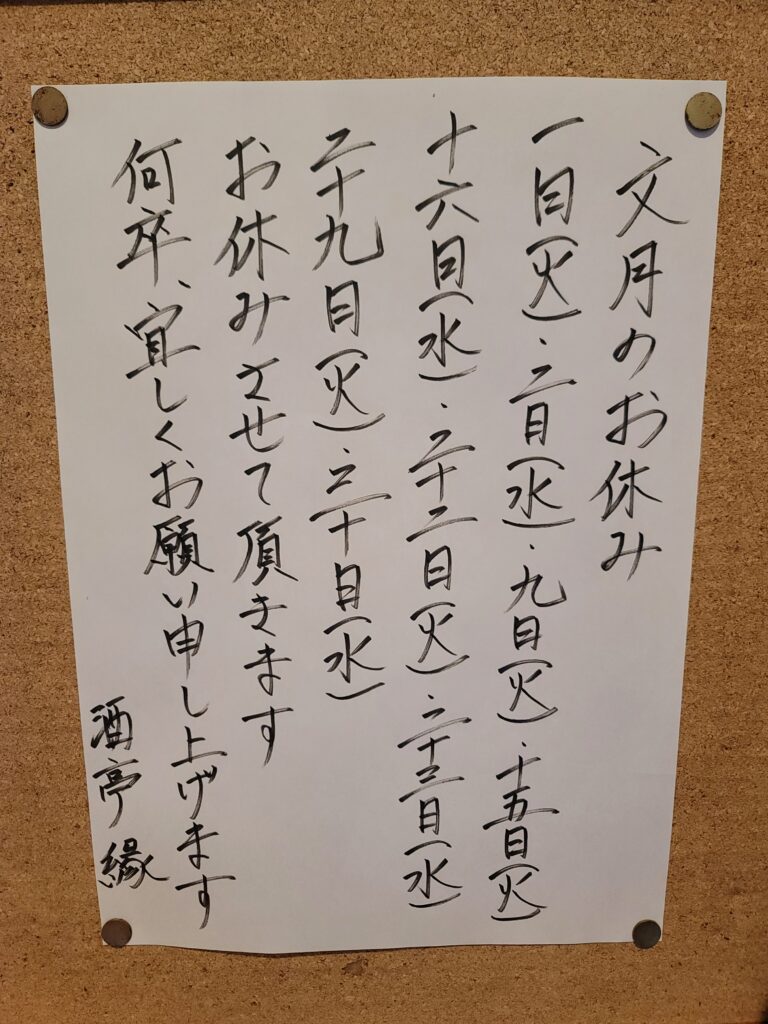 文月のお休み
一日(火)・二日(水)・九日(火)・十五日(火)
十六日(水)・二十二日(火)・二十三日(水)
二十九日(火)・三十日(水)
お休みさせて頂きます
何卒、宜しくお願い申し上げます
酒亭 縁